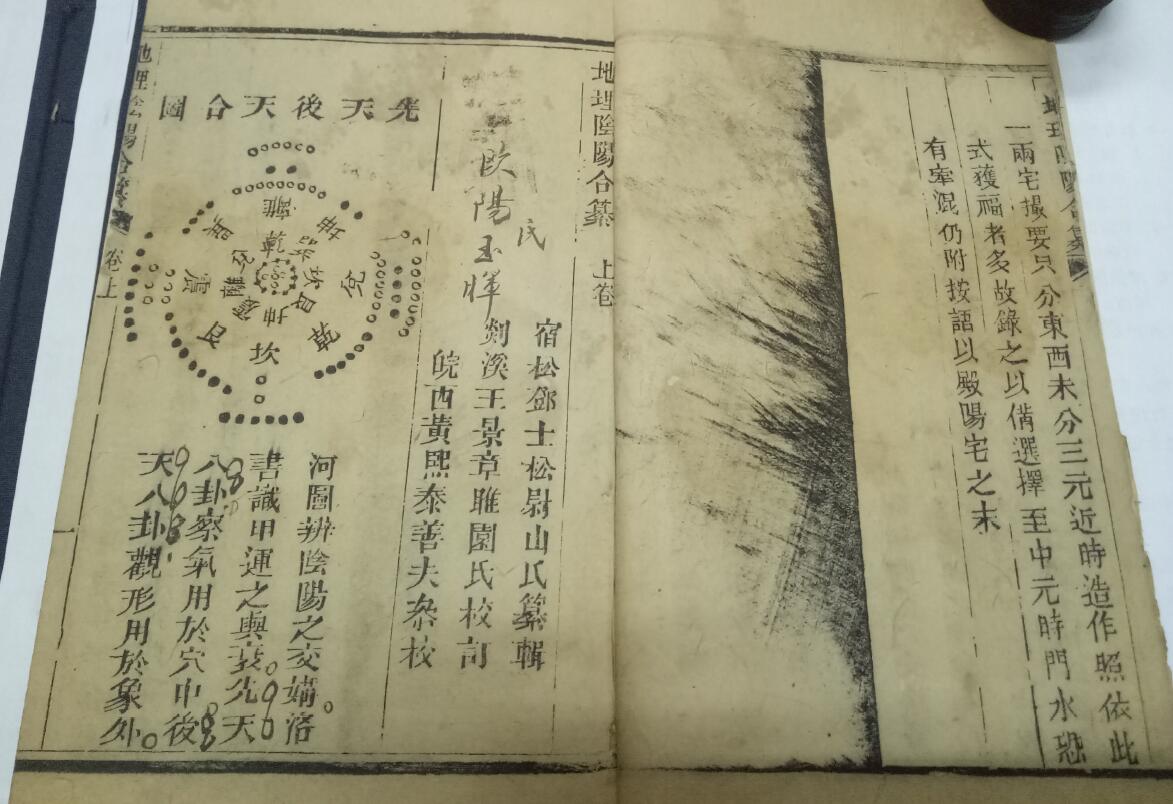 地理陰陽合纂
一兩宅撮要只分東西未分三元近時造作照依此
式獲福者多故錄之以備選擇至中元時門水恐
有牽混仍附按語以殿陽宅之末
地理陰陽合纂 上卷
宿松鄧士松尉山氏纂輯
剡溪王景章雎園氏校訂
皖西黃熙泰善夫叅校
歐陽玉暉
氏
先天後天合圖
離
坤
兌
乾
坎
艮
震
巽
乾
巽
坎
艮
坤
震
離
兌
河圖辨陰陽之交媾洛
書識甲運之興衰先天
八卦察氣用於穴中後
天八卦觀形用於象外
地理陰陽合纂 卷上